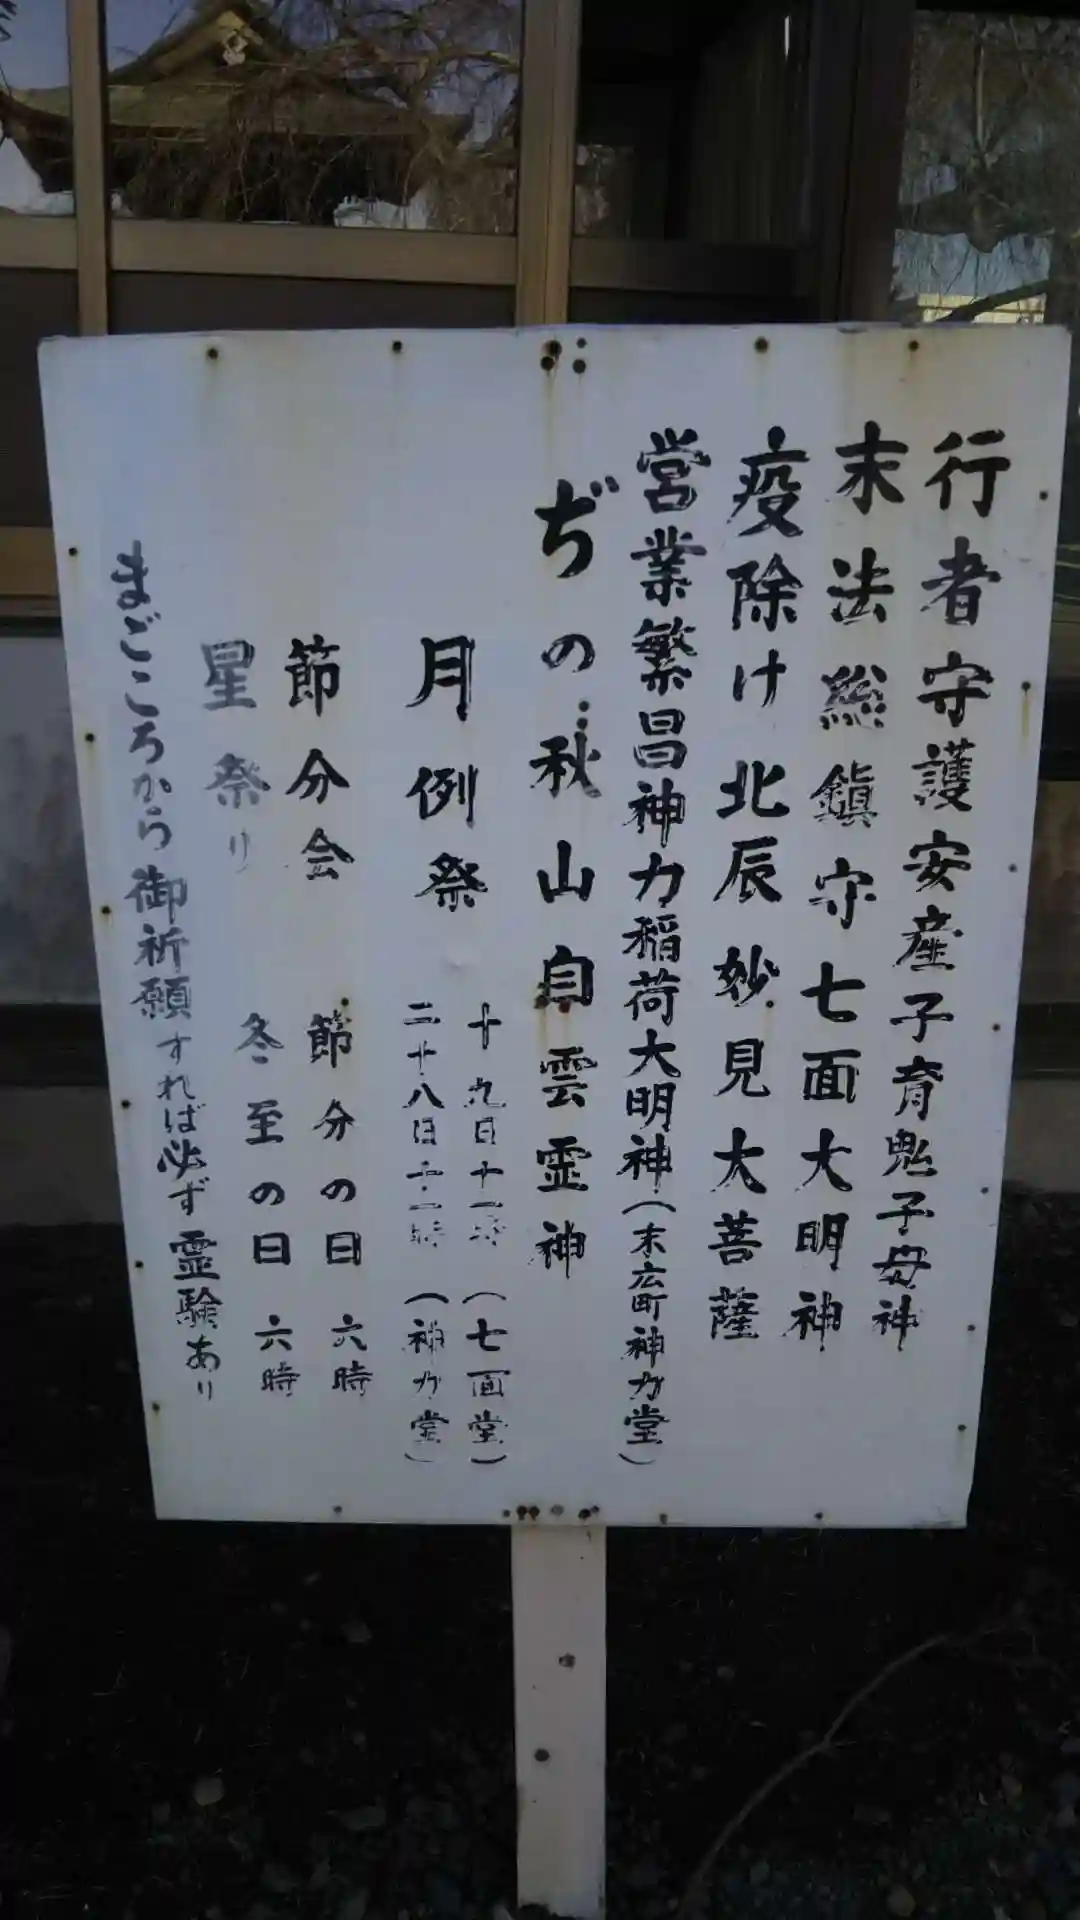 行者守護安産子育鬼子母神
末法総鎮守七面大明神
疫除け北辰妙見大菩薩
営業繁昌神力稲荷大明神(末広町神力堂)
ぢの秋山自雲霊神
月例祭 十九日十一時(七面堂)
二十八日十一時(神力堂)
節分会 節分の日 六時
星祭り 冬至の日 六時
まごころから御祈願すれば必ず霊験あり